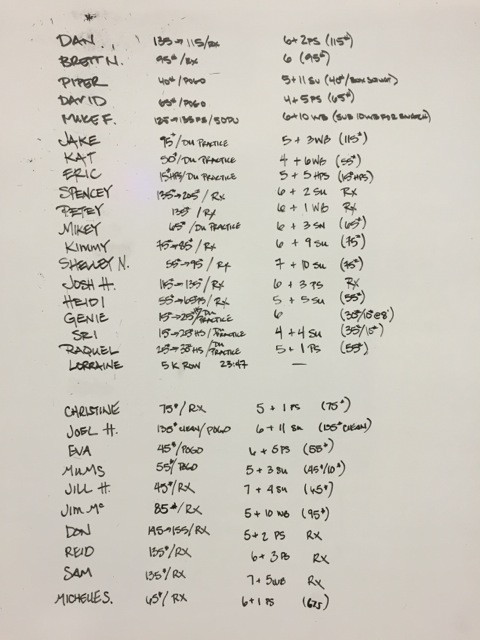 DAN. 135→115/RX 6+2PS (115#)
BRETT N. 95#/RX 6 (95#)
PIPER 40#/POGO 5+11 SU (40#/BOX SQUAT)
DAVID 65#/POGO 4+5PS (65#)
MIKE F. 125→135 PS/50DU 6+10 WB (SUB 10WB FOR
JAKE 95#/DU PRACTICE 5 + 3WB (115#)
KAT 50#/DU PRACTICE 4 + 6WB (55#)
ERIC 15#HPS/DU PRACTICE 5 + 5 HPS (15#HPS)
SPENCEY 135→205#/RX 6 + 2 SU RX
PETEY 135#/RX 6 + 1 WB RX
MIKEY 65#/DU PRACTICE 6 + 3 SU (65#)
KIMMY 75→85#/RX 6 + 9 SU (75#)
SHELLEY N. 55→95#/RX 7 + 10 SU (75#)
JOSH H. 115→135#/RX 6 + 3 PS RX
HEIDI 55→65PS/RX 5 + 5 SU (55#)
GENIE 15→25#/DU PRACTICE 6
SRI 15→25#HS/DU PRACTICE 4+4 SU (35#/15#)
RAQUEL 25→35#HS/DU PRACTICE 5+1 PS (55#)
LORRAINE 5K ROW 23:47 —
CHRISTINE 75#/RX 5+1 PS (75#)
JOEL H. 135#CLEAN/POGO 6+11 SU (135#CLEAN)
EVA 45#/POGO 6+5PS (55#)
MIMS 55#/POGO 5+3 SU (45#/10#)
JILL H. 45#/RX 7+4 SU (45#)
JIM Mc 85#/RX 5+10 WB (95#)
DON 145→155/RX 5+2 PS RX
REID 135#/RX 6+3 PS RX
SAM 135#/RX 7+5WB RX
MICHELLE S. 65#/RX 6+1 PS (62.5)